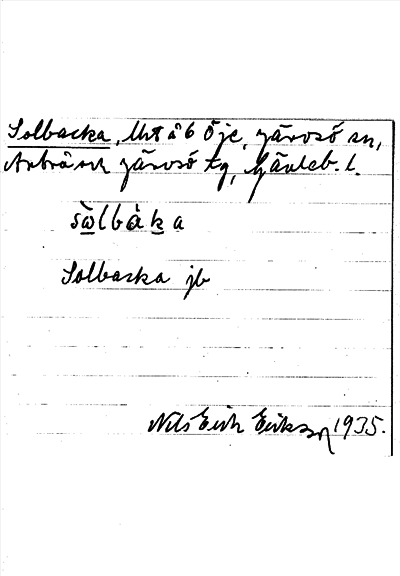 Solbacka, Lht å 6 Öje, Järvsö sn,
Arbrå och Järvsö tg, Gävleb. l.
sòlbàka
Solbacka jb
Nils Erik Erikson 1935.